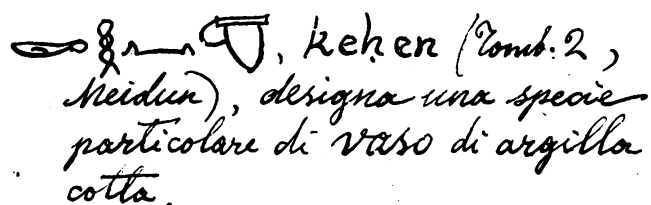 𓎡𓎛𓈖, keḥen (Tomb. 2,
Meidun), designa una specie
particolare di vaso di argilla
cotta.